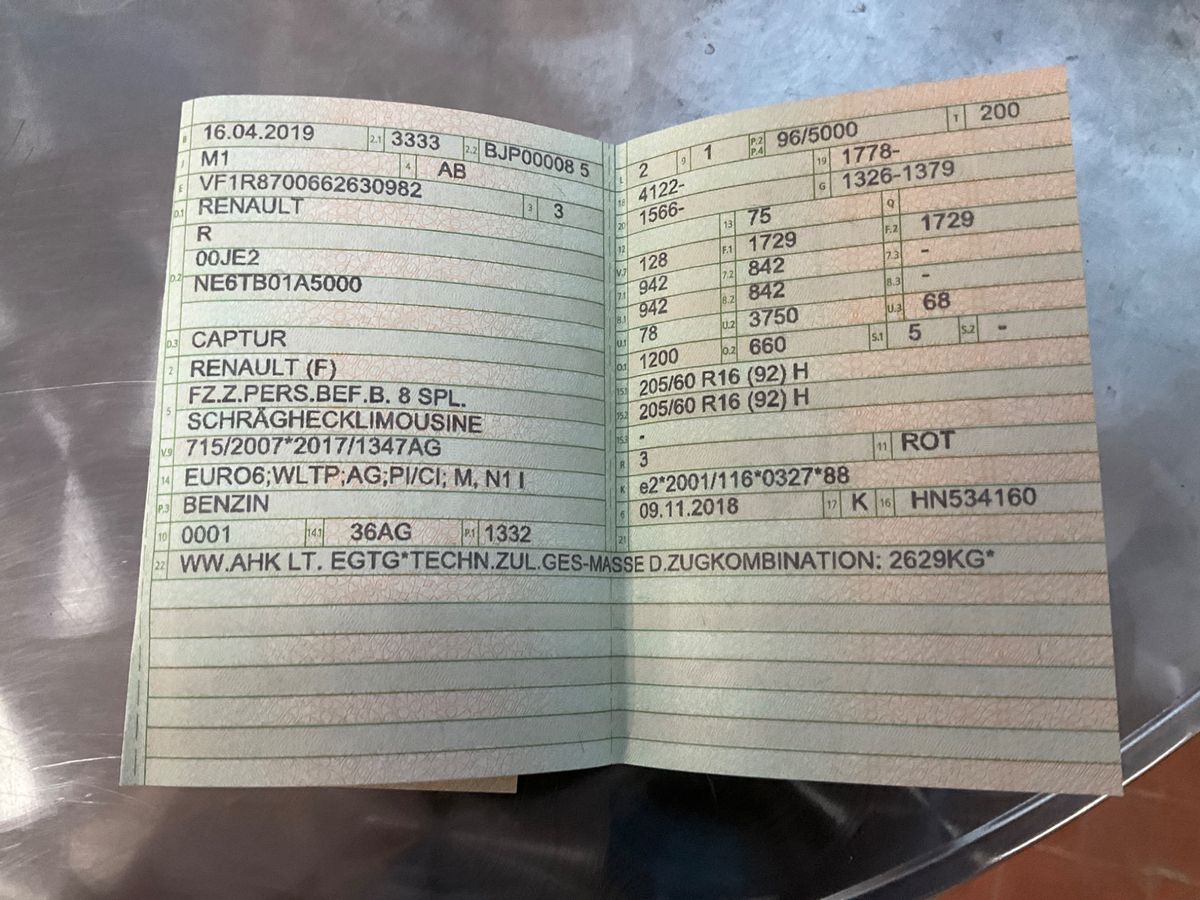 B 16.04.2019 2.1 3333 2.2 BJP00008 5
J M1 4 AB
E VF1R8700662630982
D.1 RENAULT 3 3
R
D.2 00JE2
NE6TB01A5000
D.3 CAPTUR
2 RENAULT (F)
5 FZ.Z.PERS.BEF.B. 8 SPL.
SCHRÄGHECKLIMOUSINE
V.9 715/2007*2017/1347AG
14 EURO6;WLTP;AG;PI/CI; M, N1 I
P.3 BENZIN
10 0001 14.1 36AG P.1 1332
L 2 9 1 P.2 P.4 96/5000 T 200
18 4122- 19 1778-
20 1566- G 1326-1379
12 13 75 Q
V.7 128 F.1 1729 F.2 1729
7.1 942 7.2 842 7.3 -
8.1 942 8.2 842 8.3 -
U.1 78 U.2 3750 U.3 68
O.1 1200 O.2 660 S.1 5 S.2 -
15.1 205/60 R16 (92) H
15.2 205/60 R16 (92) H
15.3 -
R 3 11 ROT
K e2*2001/116*0327*88
6 09.11.2018 17 K 16 HN534160
21
22 WW.AHK LT. EGTG*TECHN.ZUL.GES-MASSE D.ZUGKOMBINATION: 2629KG*